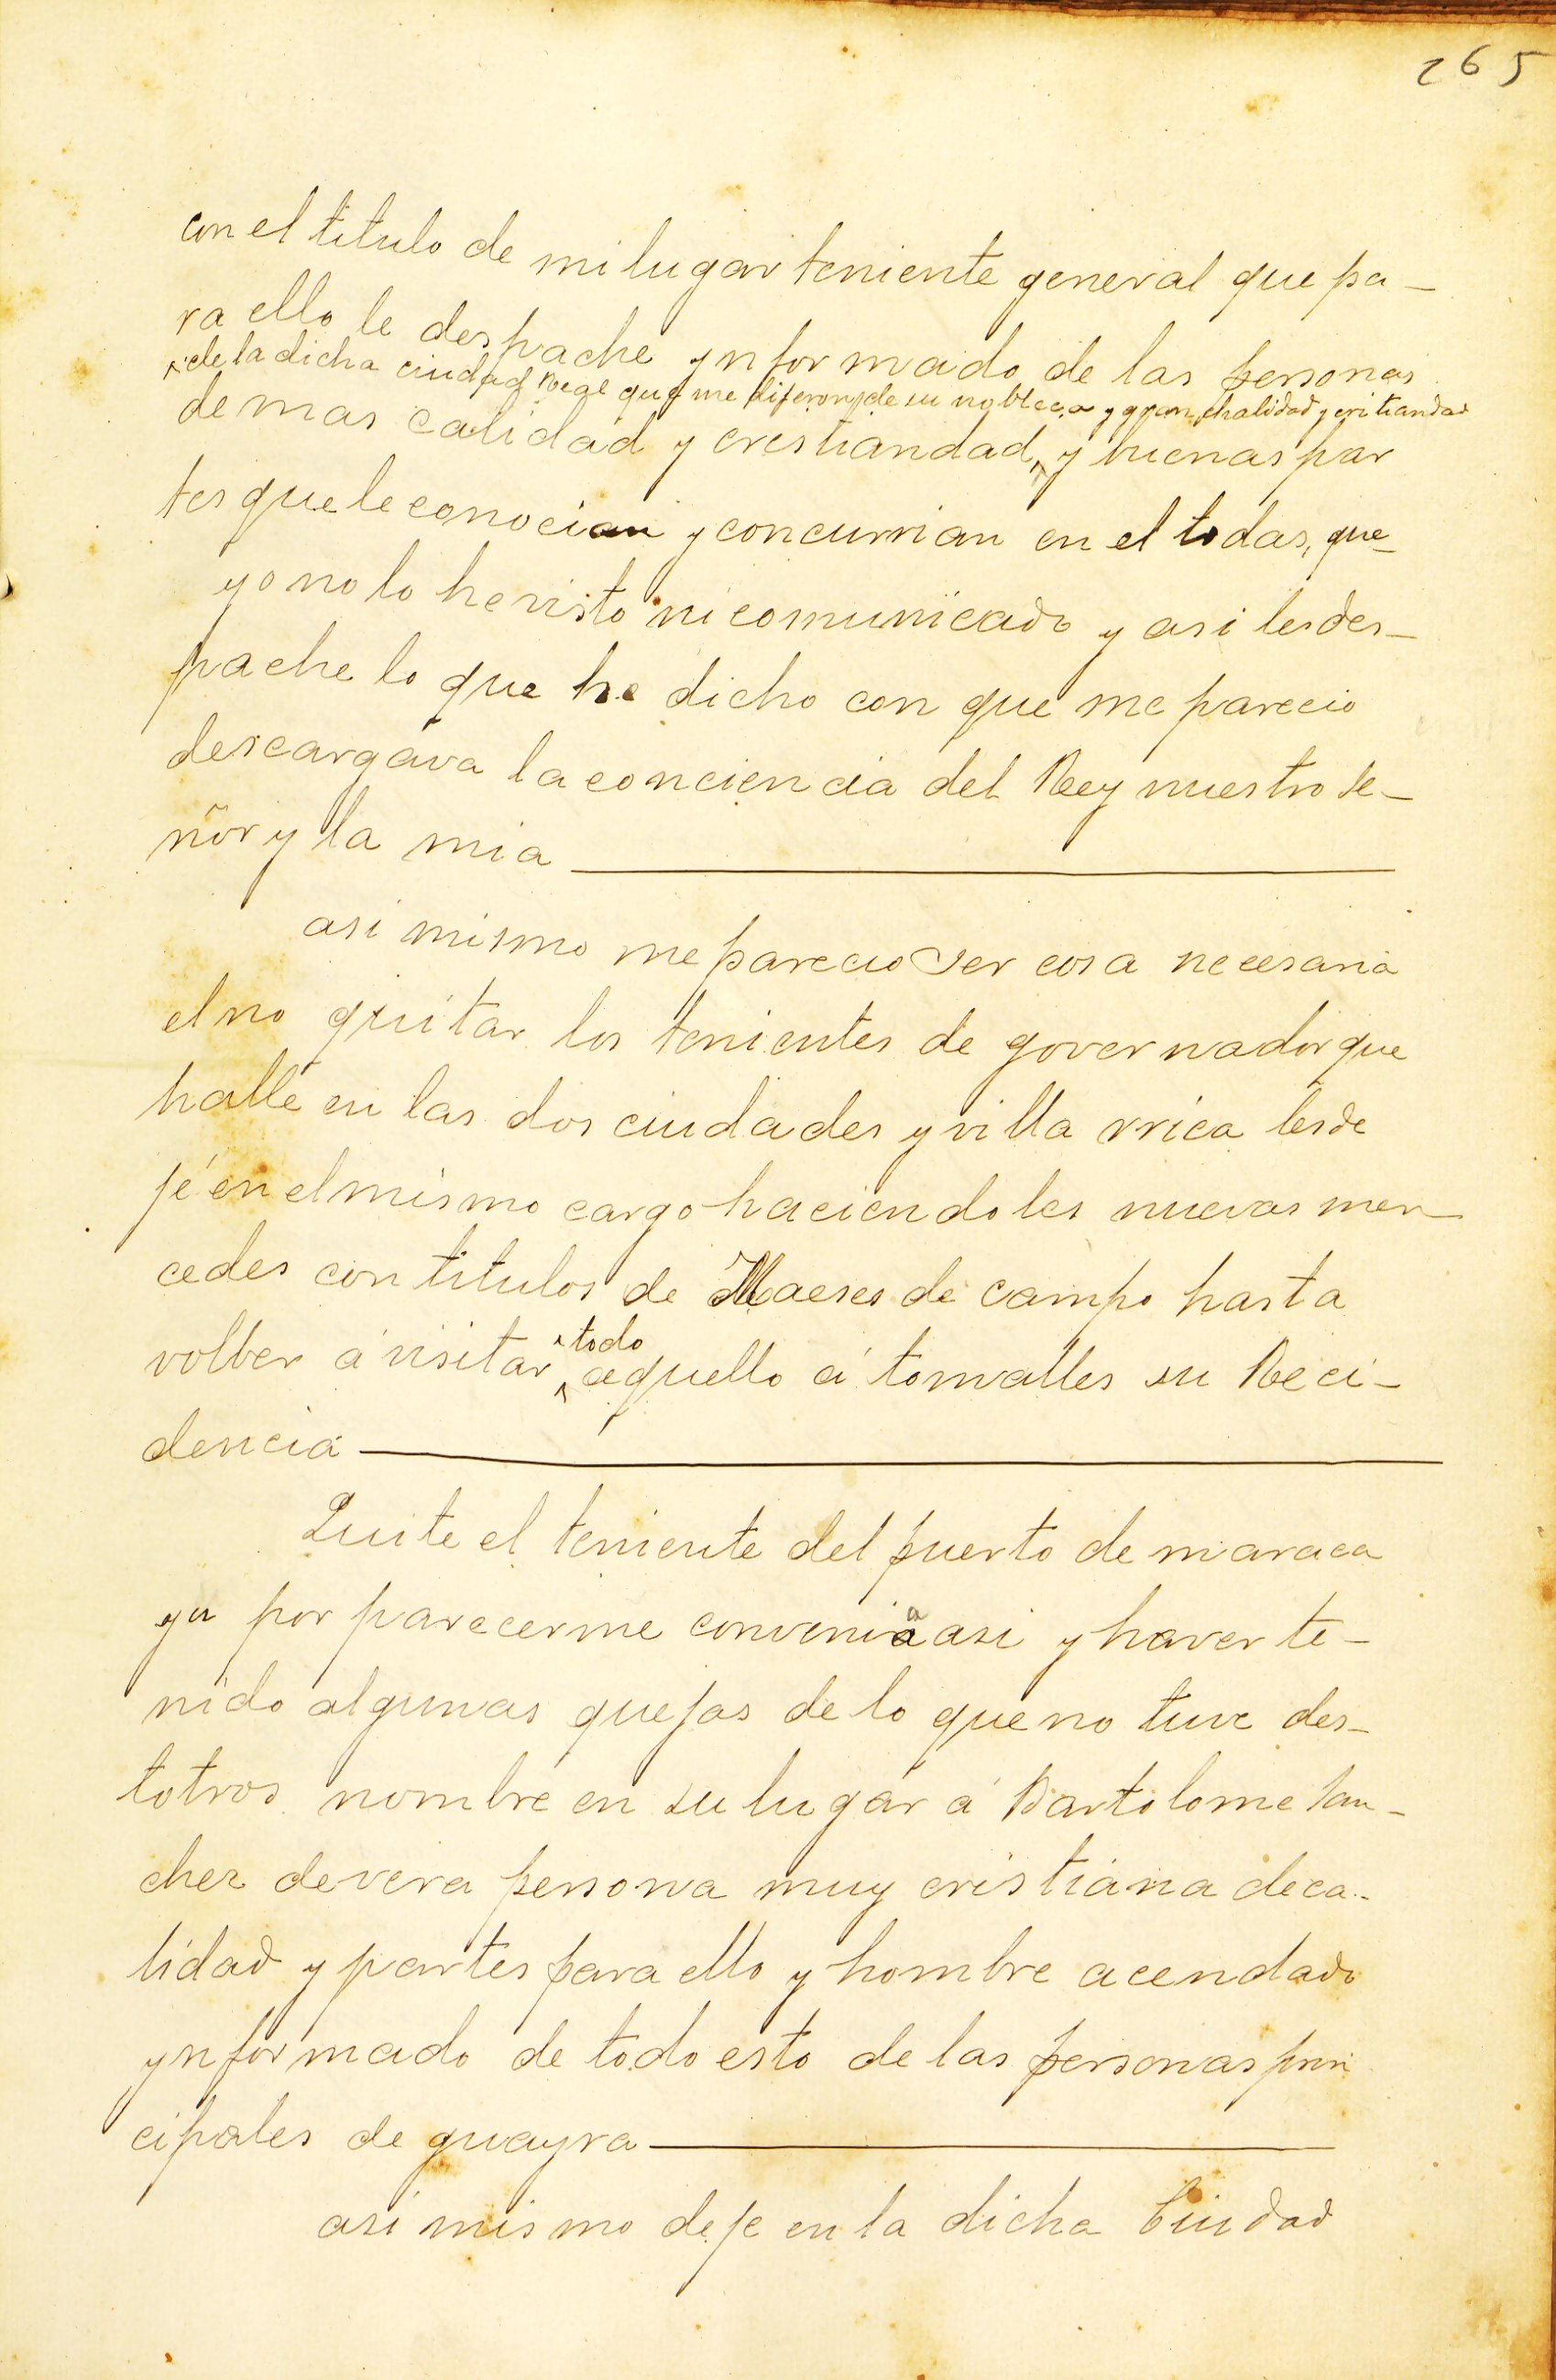 265
con el titulo de mi lugar teniente general que pa-
ra ello le despache ynformado de las personas
de la dicha ciudad Real que me dijeron de su nobleça y gran chalidad y critiandad
de mas calidad y crestiandad, y buenas par
tes que le conocian y concurrian en el todas, que
yo no lo he visto ni comunicado y asi les des-
pache lo que he dicho con que me parecio
descargava la conciencia del Rey nuestro se-
ñor y la mia
asi mismo me parecio ser cosa necesaria
el no quitar los tenientes de governador que
halle en las dos ciudades y villa rrica les de
jé en el mismo cargo haciendo les nuevas mer-
cedes con titulos de Maeses de campo hasta
todo
volber á visitar aquello á tomalles su Reci-
dencia
Quite el teniente del puerto de maraca
yu por parecerme convenia asi y haver te-
nido algunas quejas de lo que no tuve des-
totros nombre en su lugar á Bartolome San-
chez de vera persona muy cristiana de ca-
lidad y partes para ello y hombre acendado
ynformado de todo esto de las personas prin
cipales de guayra
asi mismo deje en la dicha Ciudad